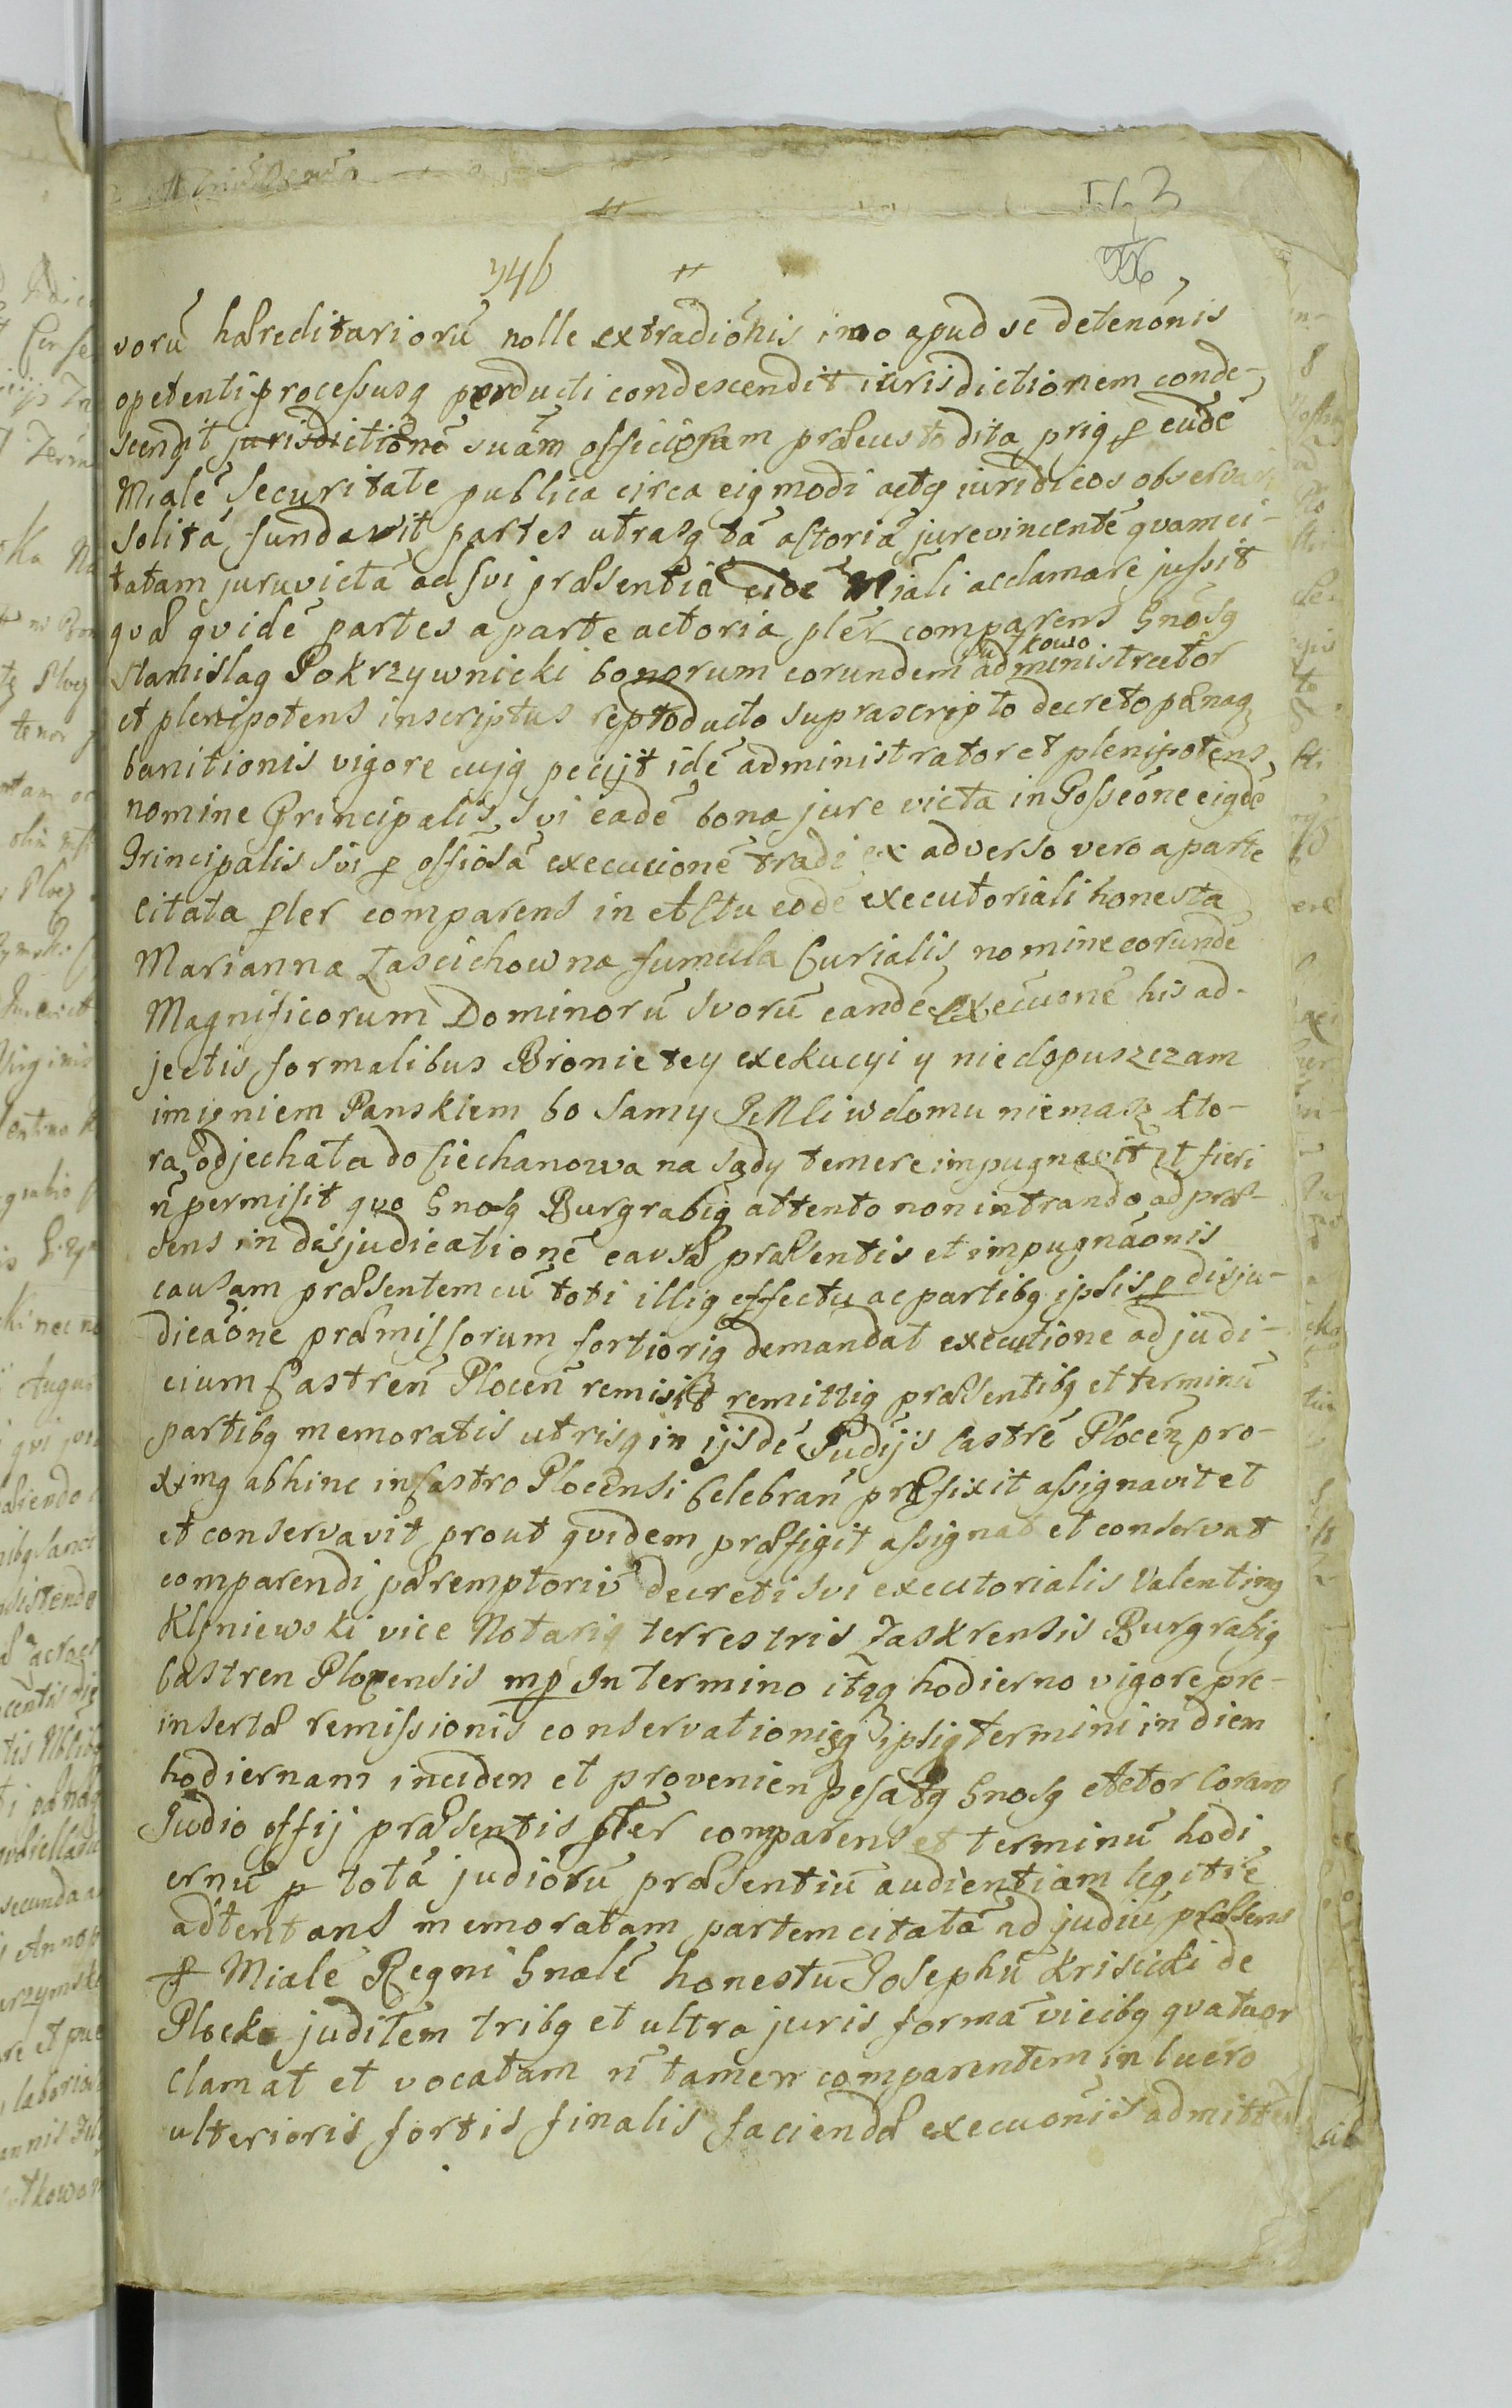 346
vorũ hæreditariorũ nolle extradiõnis imo apud se detenõnis
opetenti processusq producti condescendit iurisdictionem conde-
scendit jurisdictionẽ suam officiosam præcustodita priq ꝑ eudẽ
Mialẽ securitate publica circa eiqmodi actq iuridicos observari
solitã fundavit partes utrasq tã actoriã jurevincentẽ qvam ci-
tatam juruvictã ad svi præsentiã eidẽ Miali acclamare jussit
qvæ qvidẽ partes a parte actoria pler comparens Gnosq
Stanislaq Pokrzywnicki bonorum eorundem administrator
et plenipotens inscriptus reproducto suprascripto decreto pænaq
banitionis vigore cujq peciit idẽ administrator et plenipotens
nomine Principalis svi eadẽ bona jure victa in Possẽone eiqdẽ
Principalis svi ꝑ offiosã execucionẽ tradi ex adverso vero a parte
citata pler comparens in actu eodẽ executoriali honesta
Marianna Zascichowna famula Curialis nomine eorundẽ
Magnificorum Dominorũ svorũ eandẽ execuonẽ his ad-
jectis formalibus Bronie tey exekucyi y niedopuszczam
imieniem Panskiem bo samy JeMSci w domu niemasz kto-
ra odjechała do Ciechanowa na sądy temere impugnavit et fieri
ñ permisit qvo Gnosq Burgrabiq attento non intrando ad præ-
sens in disjudicationẽ cavsæ præsentis et impugnãonis
causam præsentem cũ toti illiq effectu ac partibq ipsis ꝑ disju-
dicãone præmissorum fortioriq demandat executione ad judi-
cium Castreñ Ploceñ remisit remittiq præsentibq et terminũ
partibq memoratis utrisq in ijsdẽ Judijs Castrẽ Ploceñ pro-
ximq abhinc in Castro Plocensi Celebrañ præfixit assignavit et
et conservavit prout qvidem præfigit assignat et conservat
comparendi pæremptoriũ decreti svi executorialis Valentinq
Klęniewski vice Notariq terrestris Zaskrensis Burgrabiq
Castren Plocensis mp In termino itaqq hodierno vigore pre-
insertæ remissionis conservationisq ipsiq termini in diem
hodiernam inciden et provenien pesatq Gnosq Actor Coram
Judio offij præsentis pler comparens et terminũ hodi
ernũ ꝑ totã judiorũ præsentiũ audientiam legitiẽ
adtentans memoratam partem citatã ad judiũ præsens
ꝑ Mialẽ Regni Gnalẽ honestũ Josephũ Krisicki de
Plocko juditẽm tribq et ultra juris formã vicibq qvatuor
clamat et vocatam ñ tamen comparentem in lucro
ulterioris fortis finalis faciendæ execuonis admitten